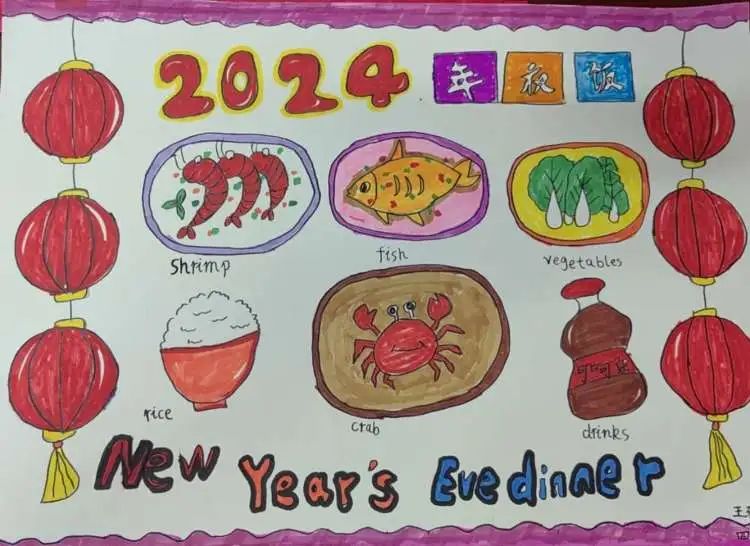 2024 年夜饭
shrimp fish vegetables
rice crab drinks
New Year's Eve dinner